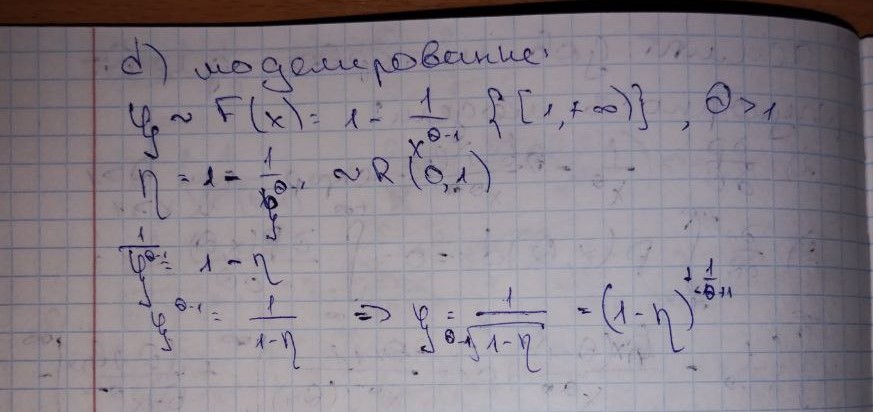 d) моделирование:
ξ ~ F(x) = 1 - 1/x^(θ-1) {[1,+∞)}, θ>1
η = 1 - 1/ξ^(θ-1) ~ R(0,1)
1/ξ^(θ-1) = 1 - η
ξ^(θ-1) = 1/(1-η) => ξ = 1/^(θ-1)√(1-η) = (1-η)^